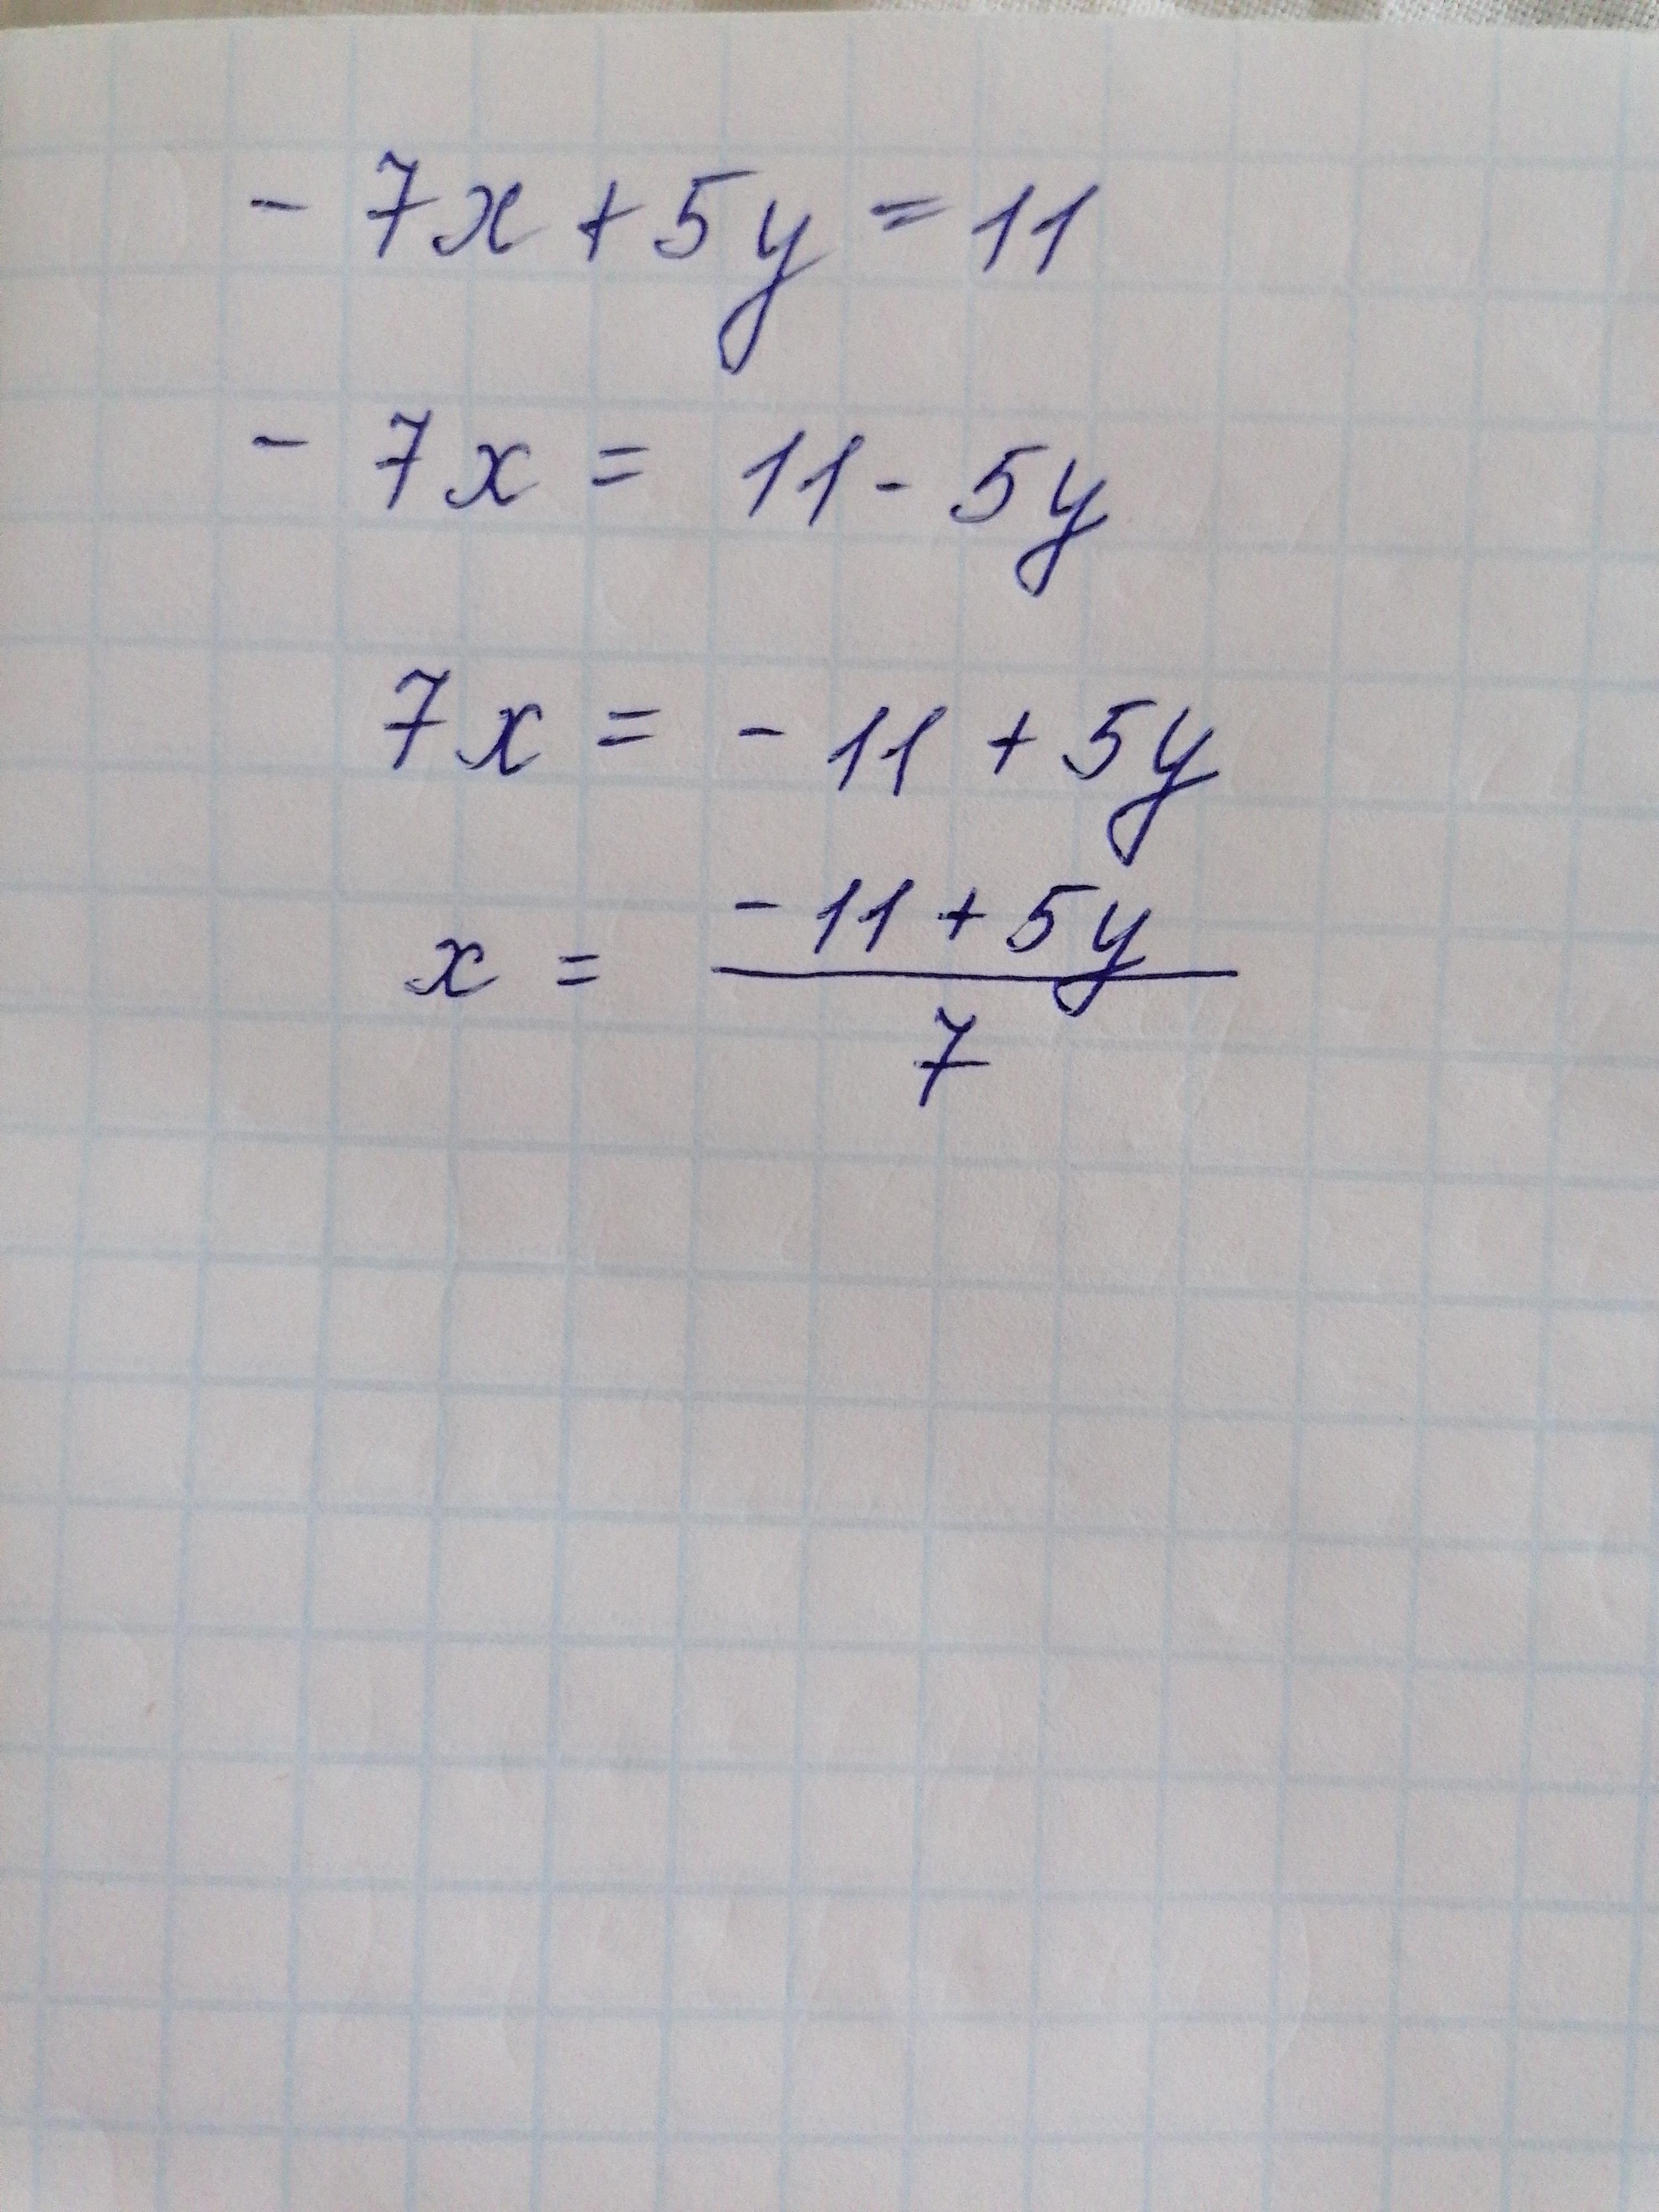 - 7x + 5y = 11
- 7x = 11 - 5y
7x = - 11 + 5y
x = \frac{- 11 + 5y}{7}